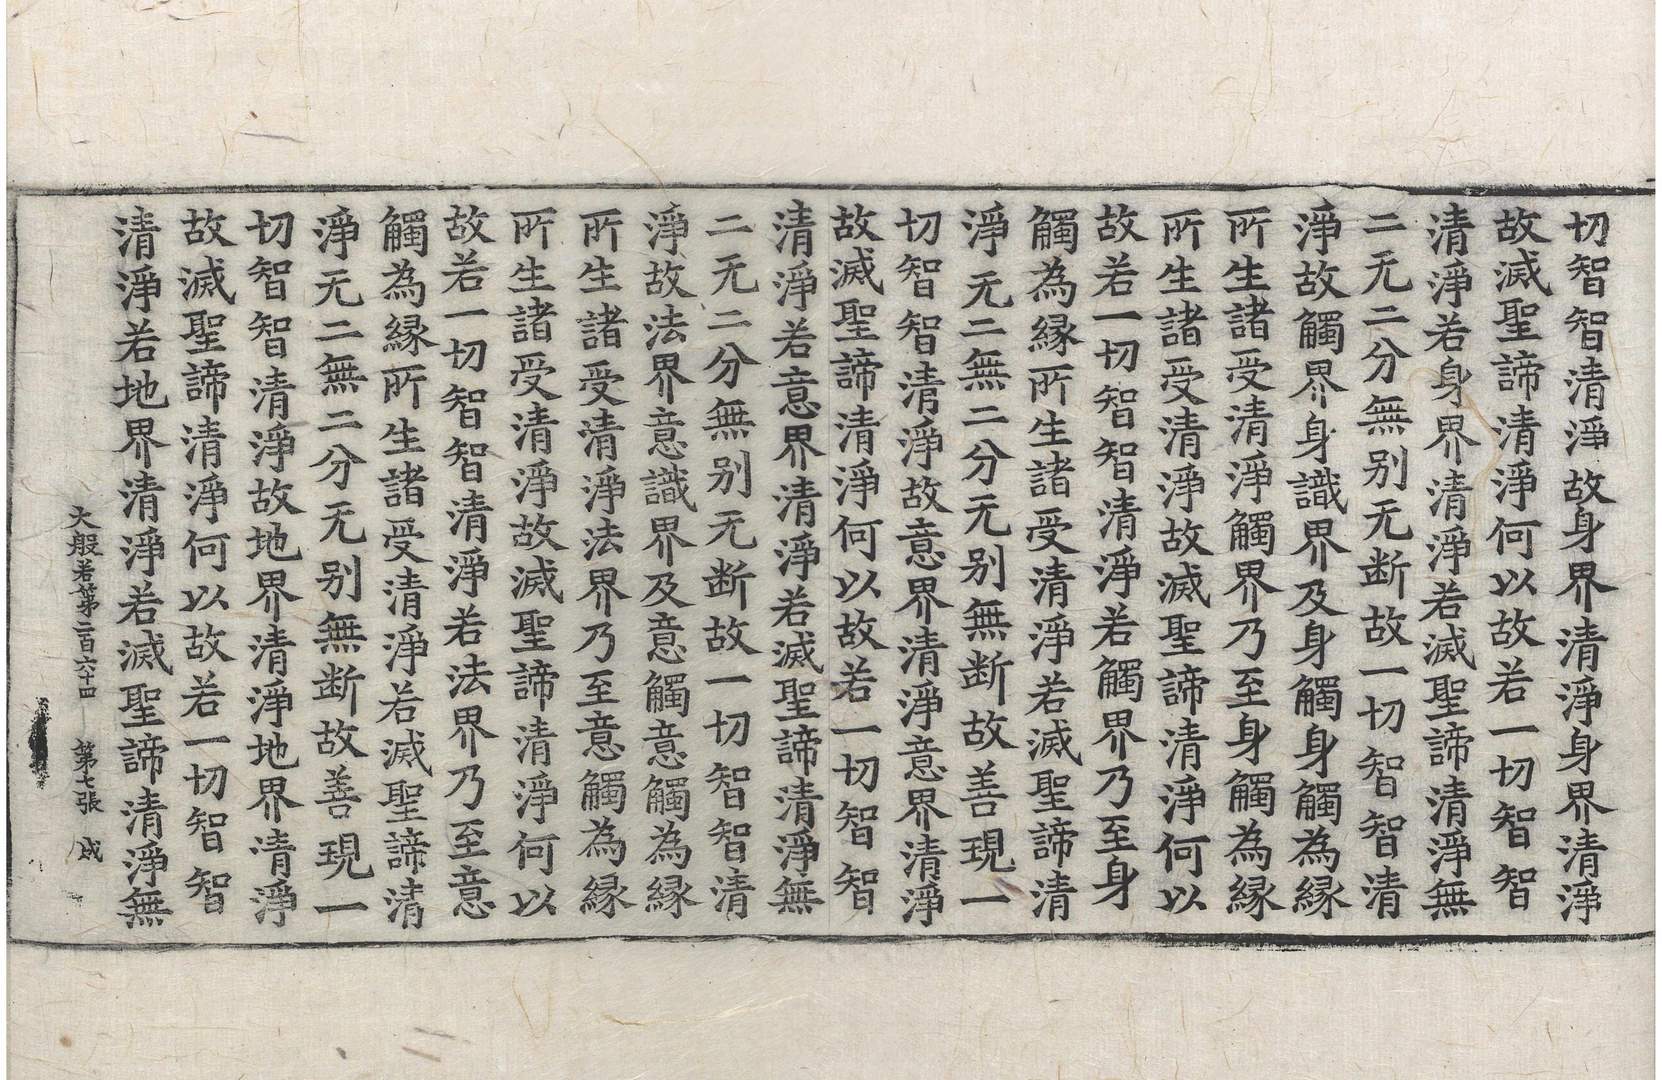 切智智清淨故身界清淨身界清淨
故滅聖諦清淨何以故若一切智智
清淨若身界清淨若滅聖諦清淨無
二无二分無别无断故一切智智清
淨故觸界身識界及身觸身觸為縁
所生諸受清淨觸界乃至身觸為縁
所生諸受清淨故滅聖諦清淨何以
故若一切智智清淨若觸界乃至身
觸為縁所生諸受清淨若滅聖諦清
淨无二無二分无别無断故善現一
切智智清淨故意界清淨意界清淨
故滅聖諦清淨何以故若一切智智
清淨若意界清淨若滅聖諦清淨無
二无二分無别无断故一切智智清
淨故法界意識界及意觸意觸為縁
所生諸受清淨法界乃至意觸為縁
所生諸受清淨故滅聖諦清淨何以
故若一切智智清淨若法界乃至意
觸為縁所生諸受清淨若滅聖諦清
淨无二無二分无别無断故善現一
切智智清淨故地界清淨地界清淨
故滅聖諦清淨何以故若一切智智
清淨若地界清淨若滅聖諦清淨無
大般若第二百六十四 第七張 咸